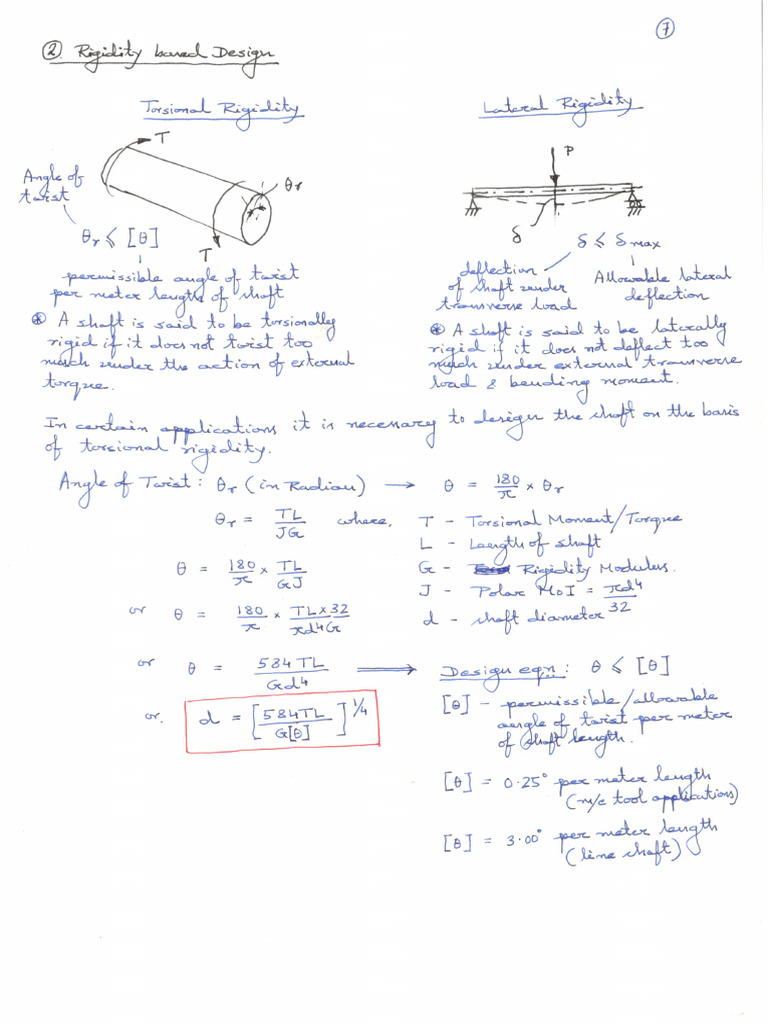 7
② Rigidity based Design
Torsional Rigidity
T
Angle of
twist
θr
θr ≤ [θ]
T
permissible angle of twist
per meter length of shaft
⊛ A shaft is said to be torsionally
rigid if it does not twist too
much under the action of external
torque.
Lateral Rigidity
P
δ
δ ≤ δmax
deflection
of shaft under
transverse load
Allowable lateral
deflection
⊛ A shaft is said to be laterally
rigid if it does not deflect too
much under external transverse
load & bending moment.
In certain applications it is necessary to design the shaft on the basis
of torsional rigidity.
Angle of Twist : θr (in Radian) → θ = 180/π × θr
θr = TL/JG where, T - Torsional Moment/Torque
L - Laength of shaft
θ = 180/π × TL/GJ
G - Rigidity Modulus.
J - Polar MoI = πd⁴/32
or θ = 180/π × TL×32/πd⁴G
d - shaft diameter
or θ = 584TL/Gd⁴ ⟹ Design eqn: θ ≤ [θ]
or. d = [584TL/G[θ]]^1/4
[θ] - permissible/allowable
angle of twist per meter
of shaft length.
[θ] = 0.25° per meter length
(m/c tool applications)
[θ] = 3.00° per meter length
(line shaft)